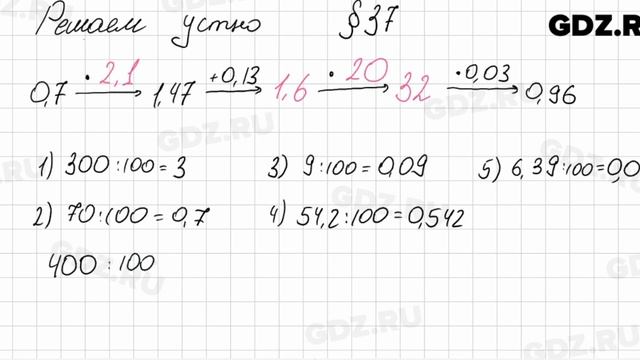 Решаем устно § 37
GDZ.R
0,7 · 2,1 → 1,47 +0,13 → 1,6 · 20 → 32 · 0,03 → 0,96
1) 300 : 100 = 3 3) 9 : 100 = 0,09 5) 6,39 : 100 = 0,0
2) 70 : 100 = 0,7 4) 54,2 : 100 = 0,542
400 : 100
GDZ.RU